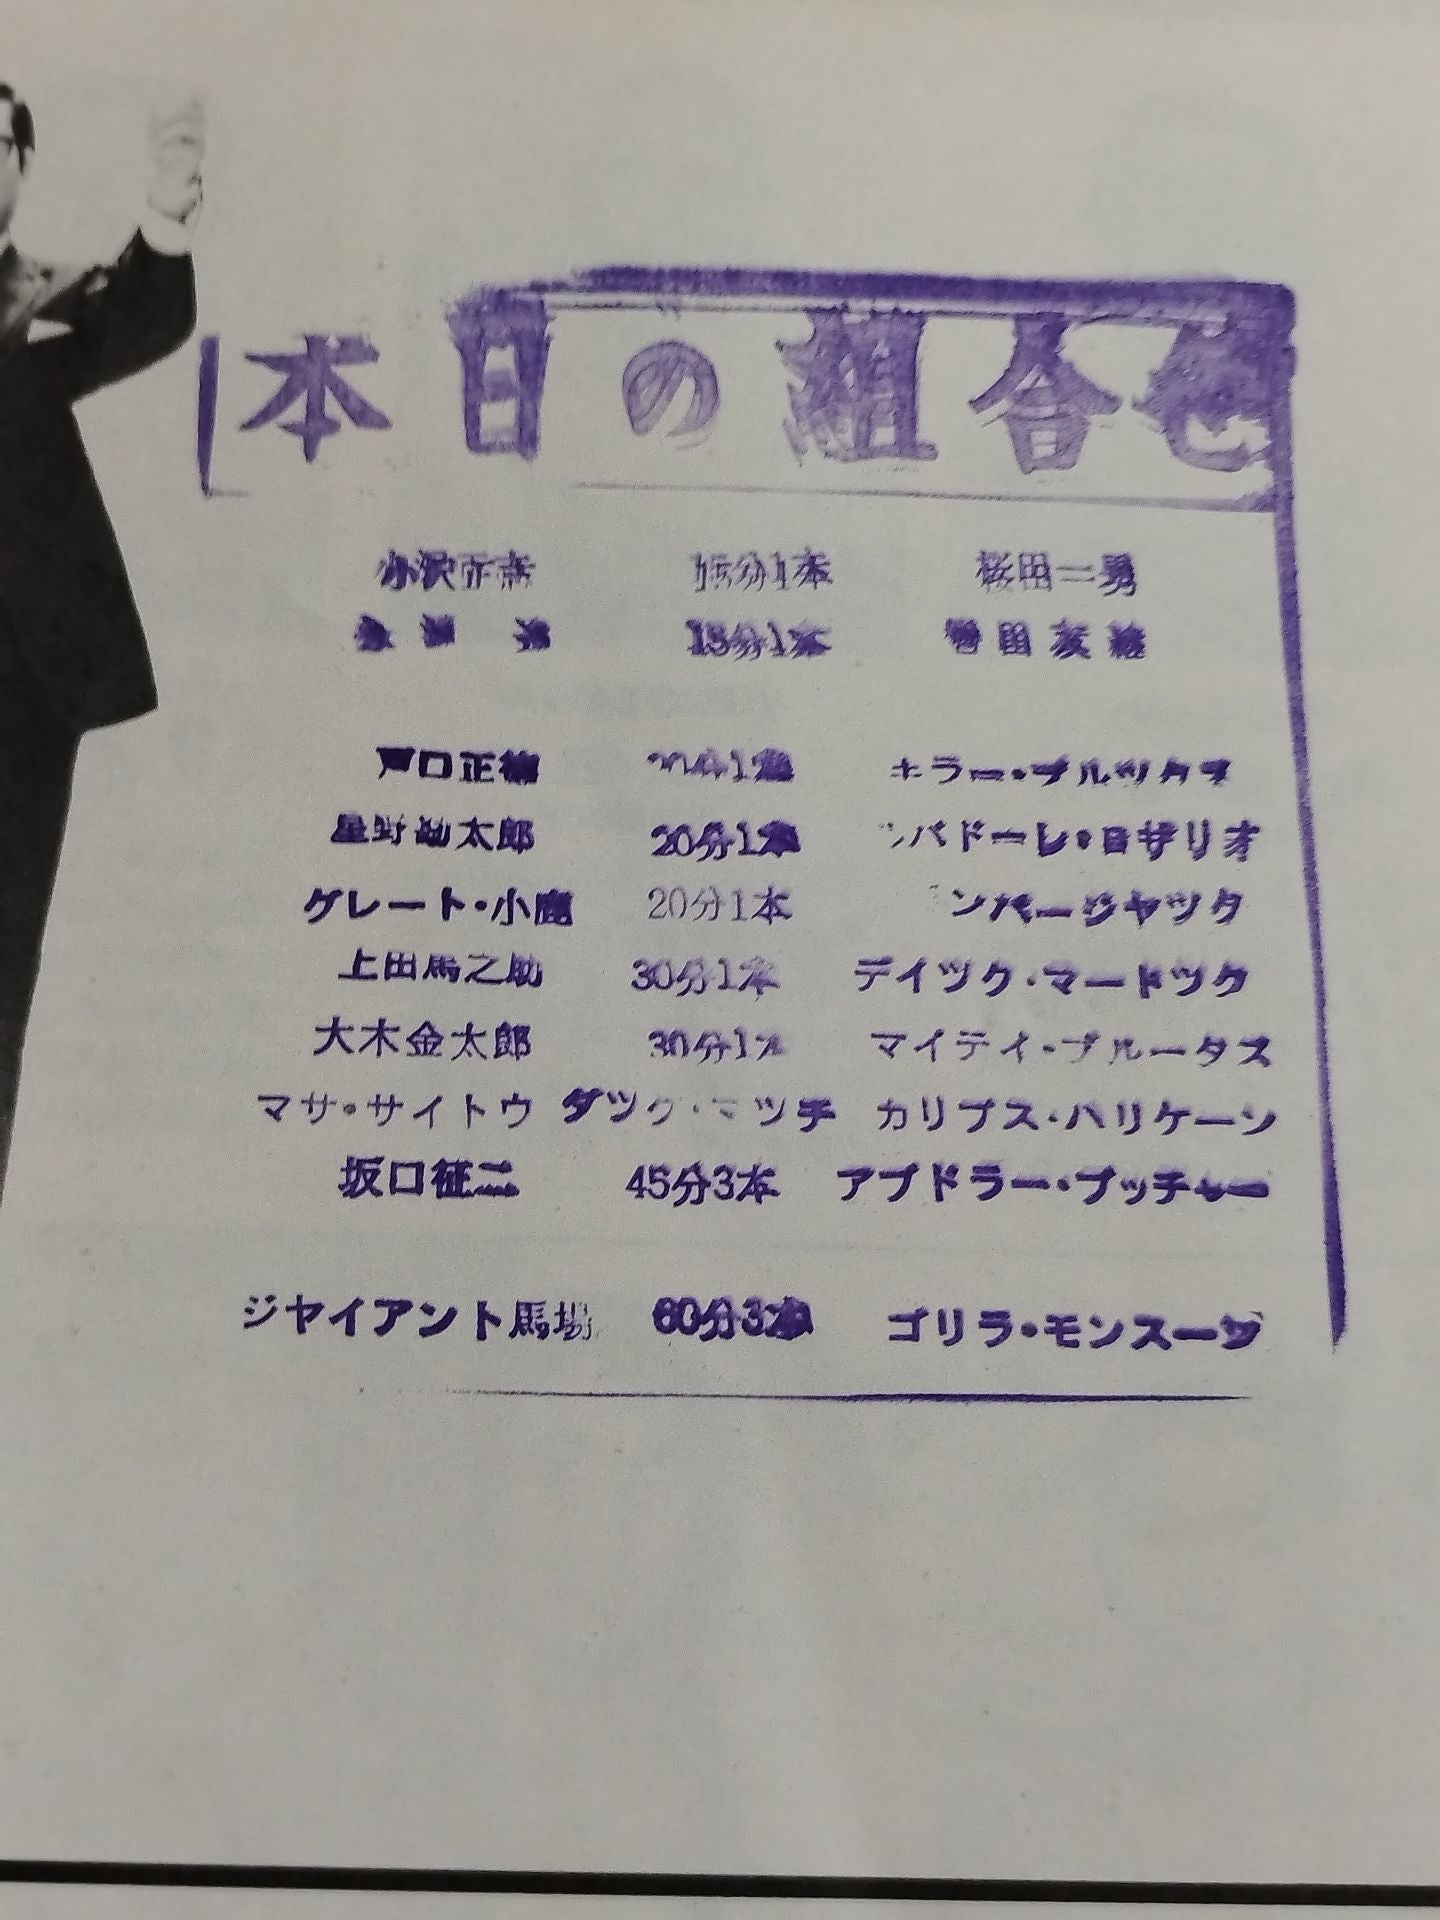 本日の組合せ
小沢正志 15分1本 桜田一男
15分1本
戸口正徳 キラー・ブルックス
星野勘太郎 20分1本 バドーレ・ロザリオ
グレート・小鹿 20分1本 ンバージヤツク
上田馬之助 30分1本 デイツク・マードツク
大木金太郎 30分1本 マイテイ・ブルータス
マサ・サイトウ タツグ・マツチ カリプス・ハリケーン
坂口征二 45分3本 アブドラー・ブッチャー
ジヤイアント馬場 60分3本 ゴリラ・モンスーン